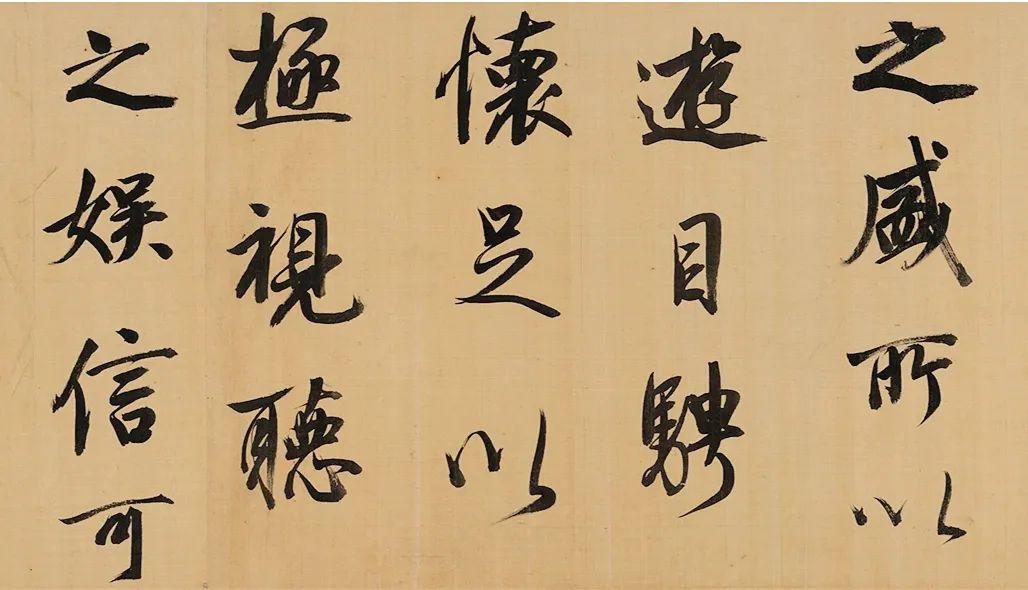 之盛所以
遊目騁
懷足以
極視聽
之娱信可